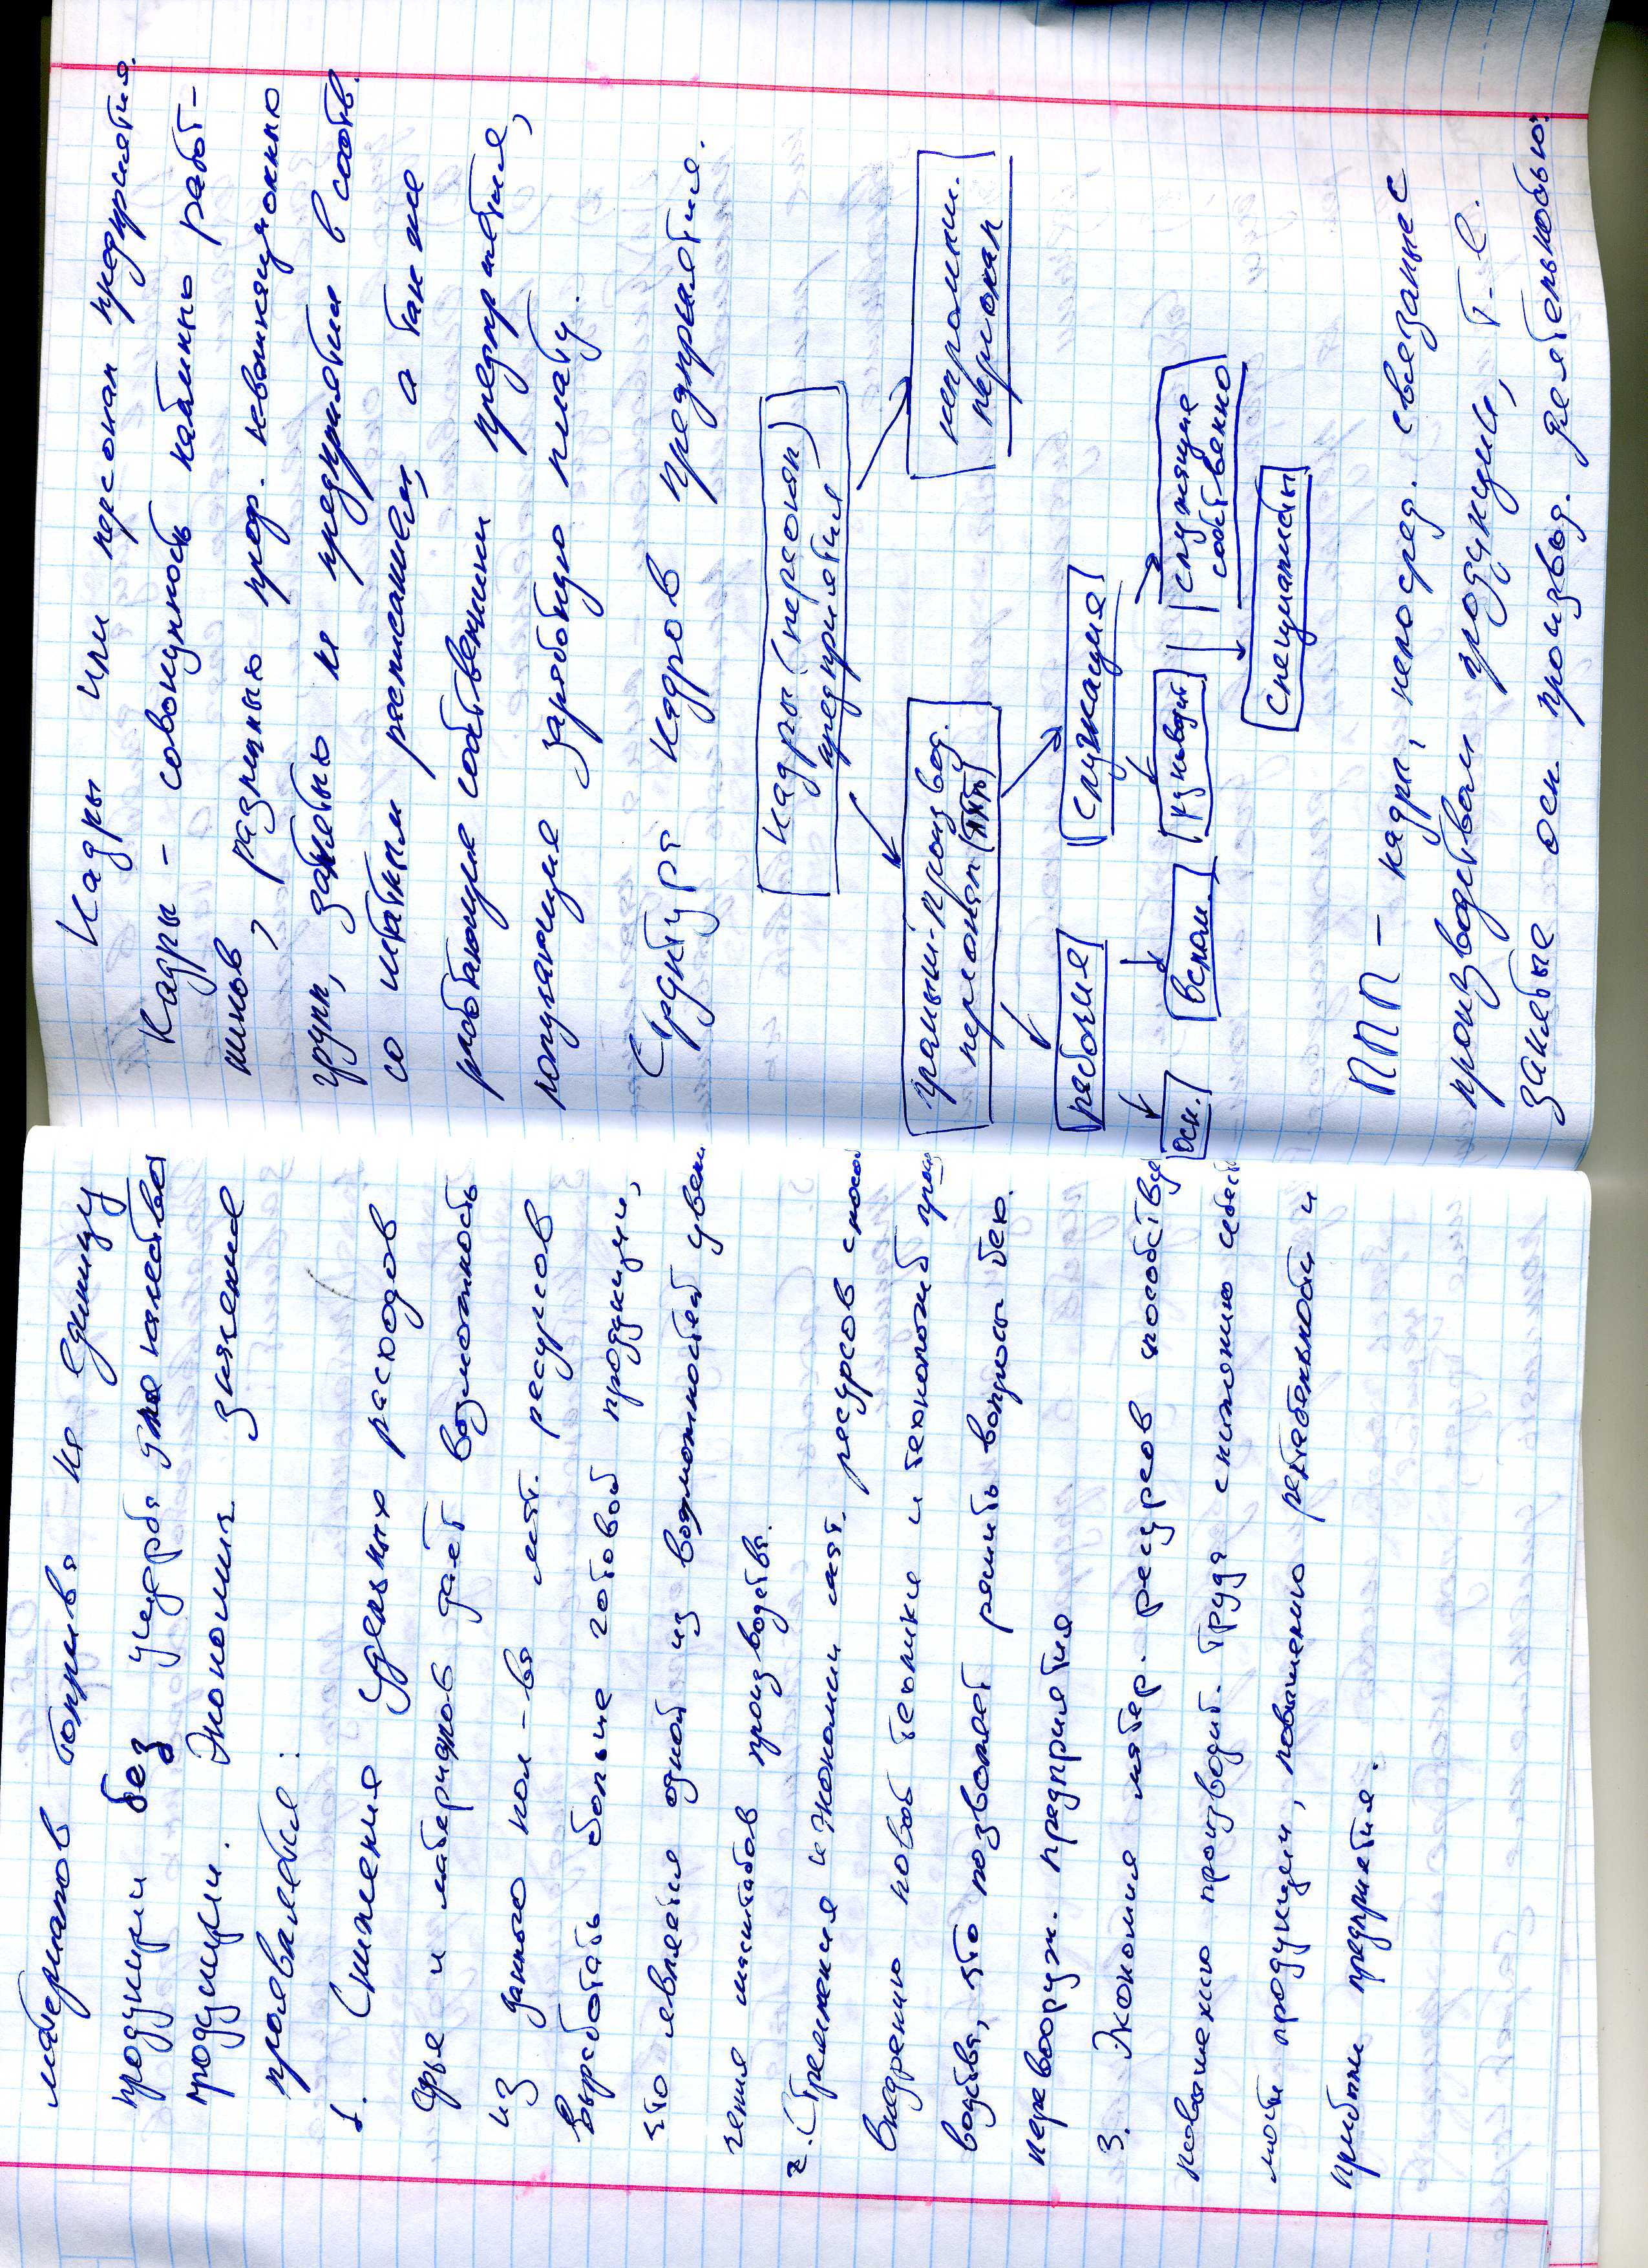 материалов топлива на единицу
продукции без ущерба для качества
продукции. Экономия значение
проявляется:
1. Снижение удельных расходов
сырья и материалов дает возможность
из данного кол-ва мат. ресурсов
выработать больше готовой продукции,
что является одной из возможностей увели
чения масштабов производства.
2. Стремления к экономии мат. ресурсов
внедрению новой техники и технологий
водства, что позволяет решить вопросы
перевооруж. предприятия
3. Экономия матер. ресурсов способству
повышению производит. труда снижению
мости продукции, повышению рентабельности и
прибыли предприятия.
Кадры или персонал предприятия.
Кадры - совокупность работ-
ников, различных проф.
групп, занятых на предприятии в соотв.
со штатным расписанием, а так же
работающие собственники предприятия,
получающие заработную плату.
Структура кадров предприятия.
Кадры (персонал)
предприятия
промышл.-производ.
персонал (ППП)
непромышл.
персонал
рабочие
служащие
осн.
вспом.
руководит
служащие
собственно
специалисты
ППП - кадры, непосред. связаные с
производством продукции, т.е.
занятые осн. производ. деятельностью: